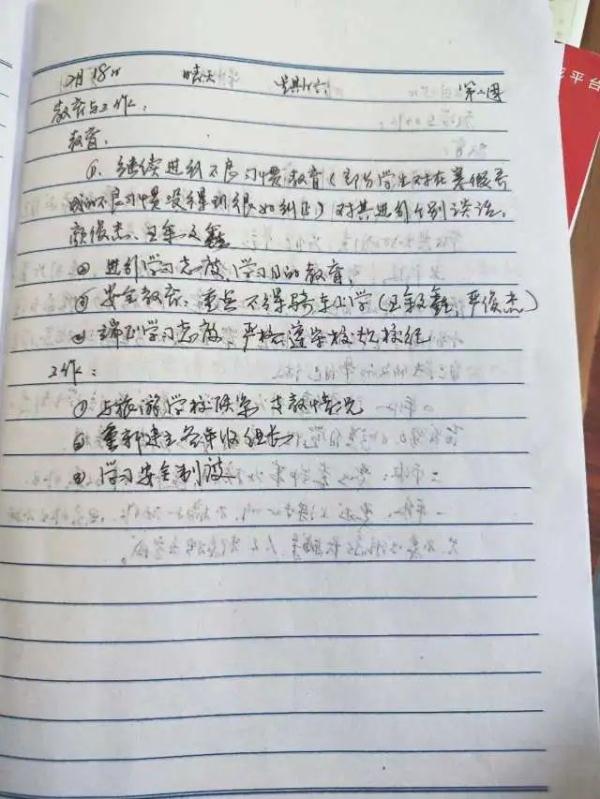 2月18日 晴天 第二周
教育与工作：
教育：
①、继续进行不良习惯教育（部分学生对在寒假养
成的不良习惯没得到很好纠正）对其进行个别谈话。
颜俊杰、王
② 进行学习态度，学习目的教育，
③ 安全教育：重点不得骑车上学（王 严俊杰）
④ 端正学习态度，严格遵守校规校纪
工作：
① 与旅游学校联系支教情况
② 重新建立各年级组长
③ 学习安全制度
平台